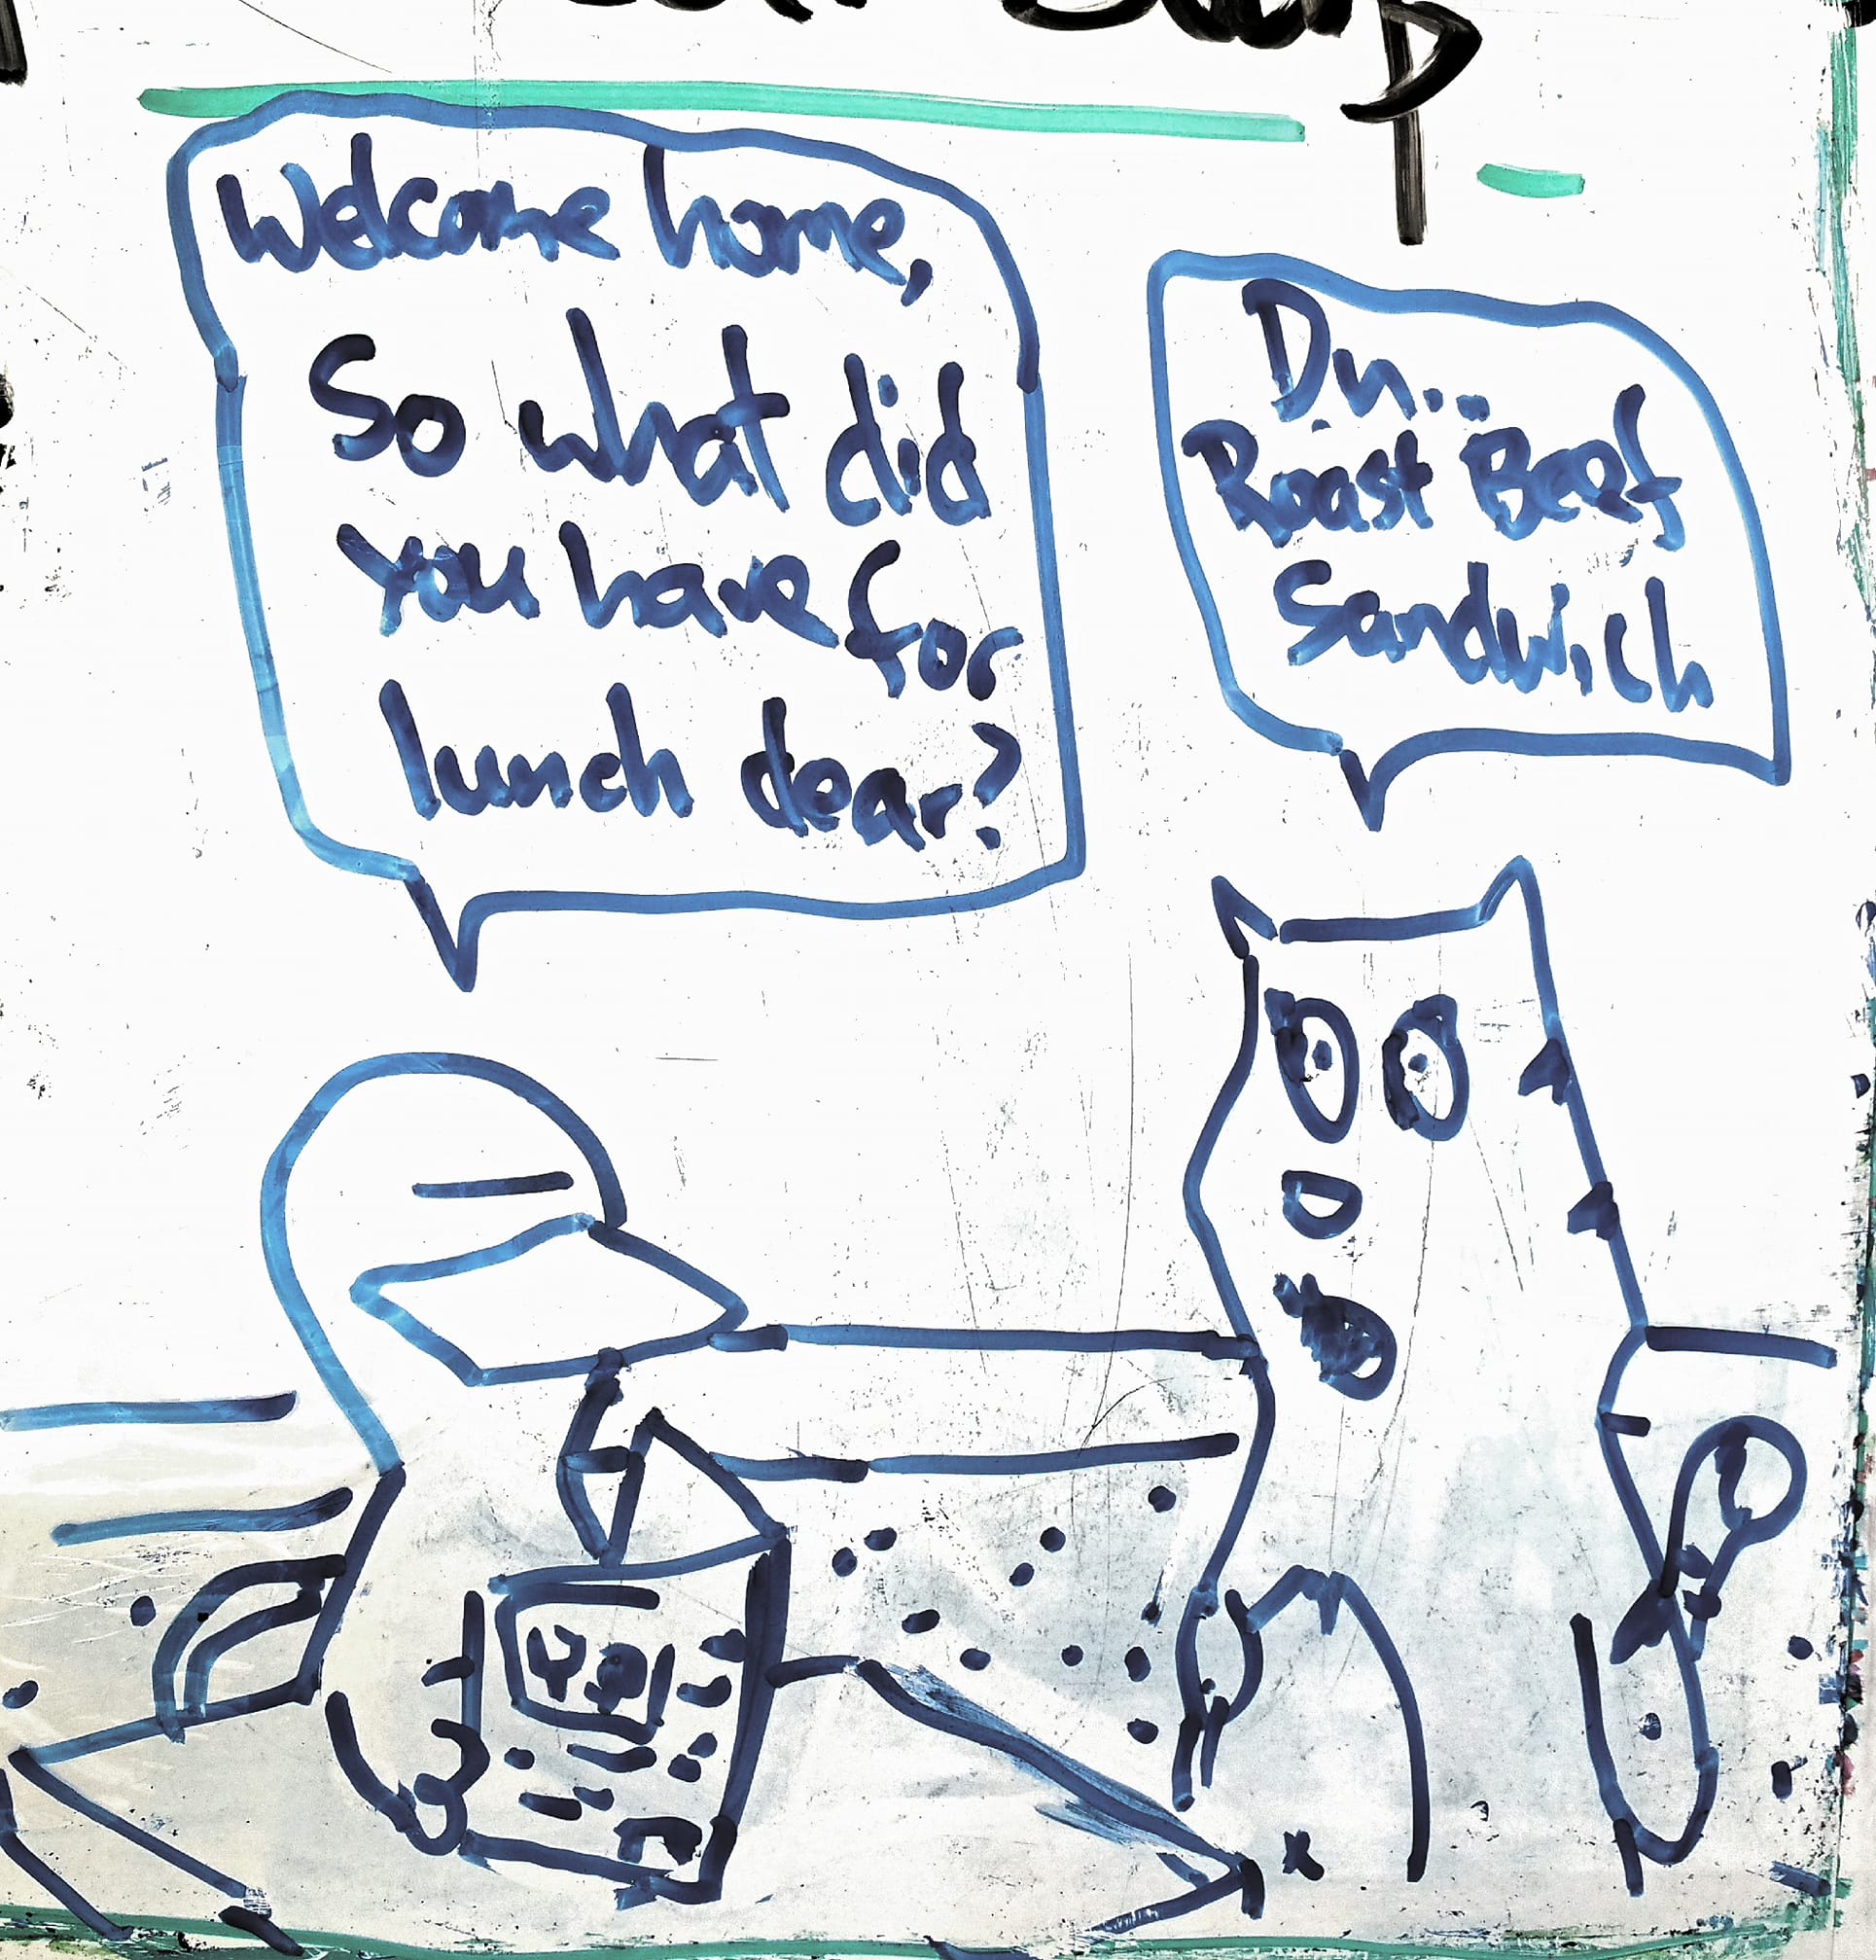 Welcome home,
So what did
you have for
lunch dear?
Du...
Roast Beef
Sandwich